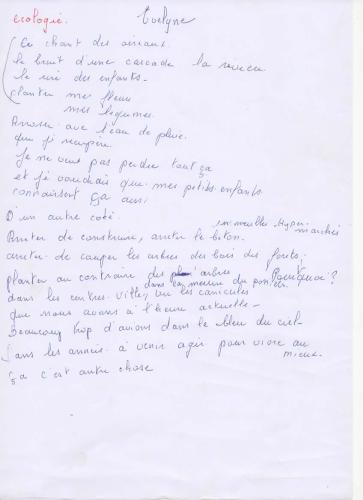 ecologie. Evelyne
Le chant des oiseaux
le bruit d'une cascade la rivière
le rire des enfants.
planter mes fleurs
mes légumes.
Arroser avec l'eau de pluie.
que je récupère.
Je ne veux pas perdre tout ça
et je voudrais que mes petits enfants
connaissent ça aussi
D'un autre coté.
immeubles hyper-marchés
Arreter de construire, arreter le béton.
arreter de couper les arbres des bois des forets.
planter au contraire des arbres Pourquoi ?
dans la mesure du possible
dans les centres villes, vu les canicules
que nous avons à l'heure actuelle.
Beaucoup trop d'avions dans le bleu du ciel
Dans les années à venir agir pour vivre au mieux.
ça c'est autre chose